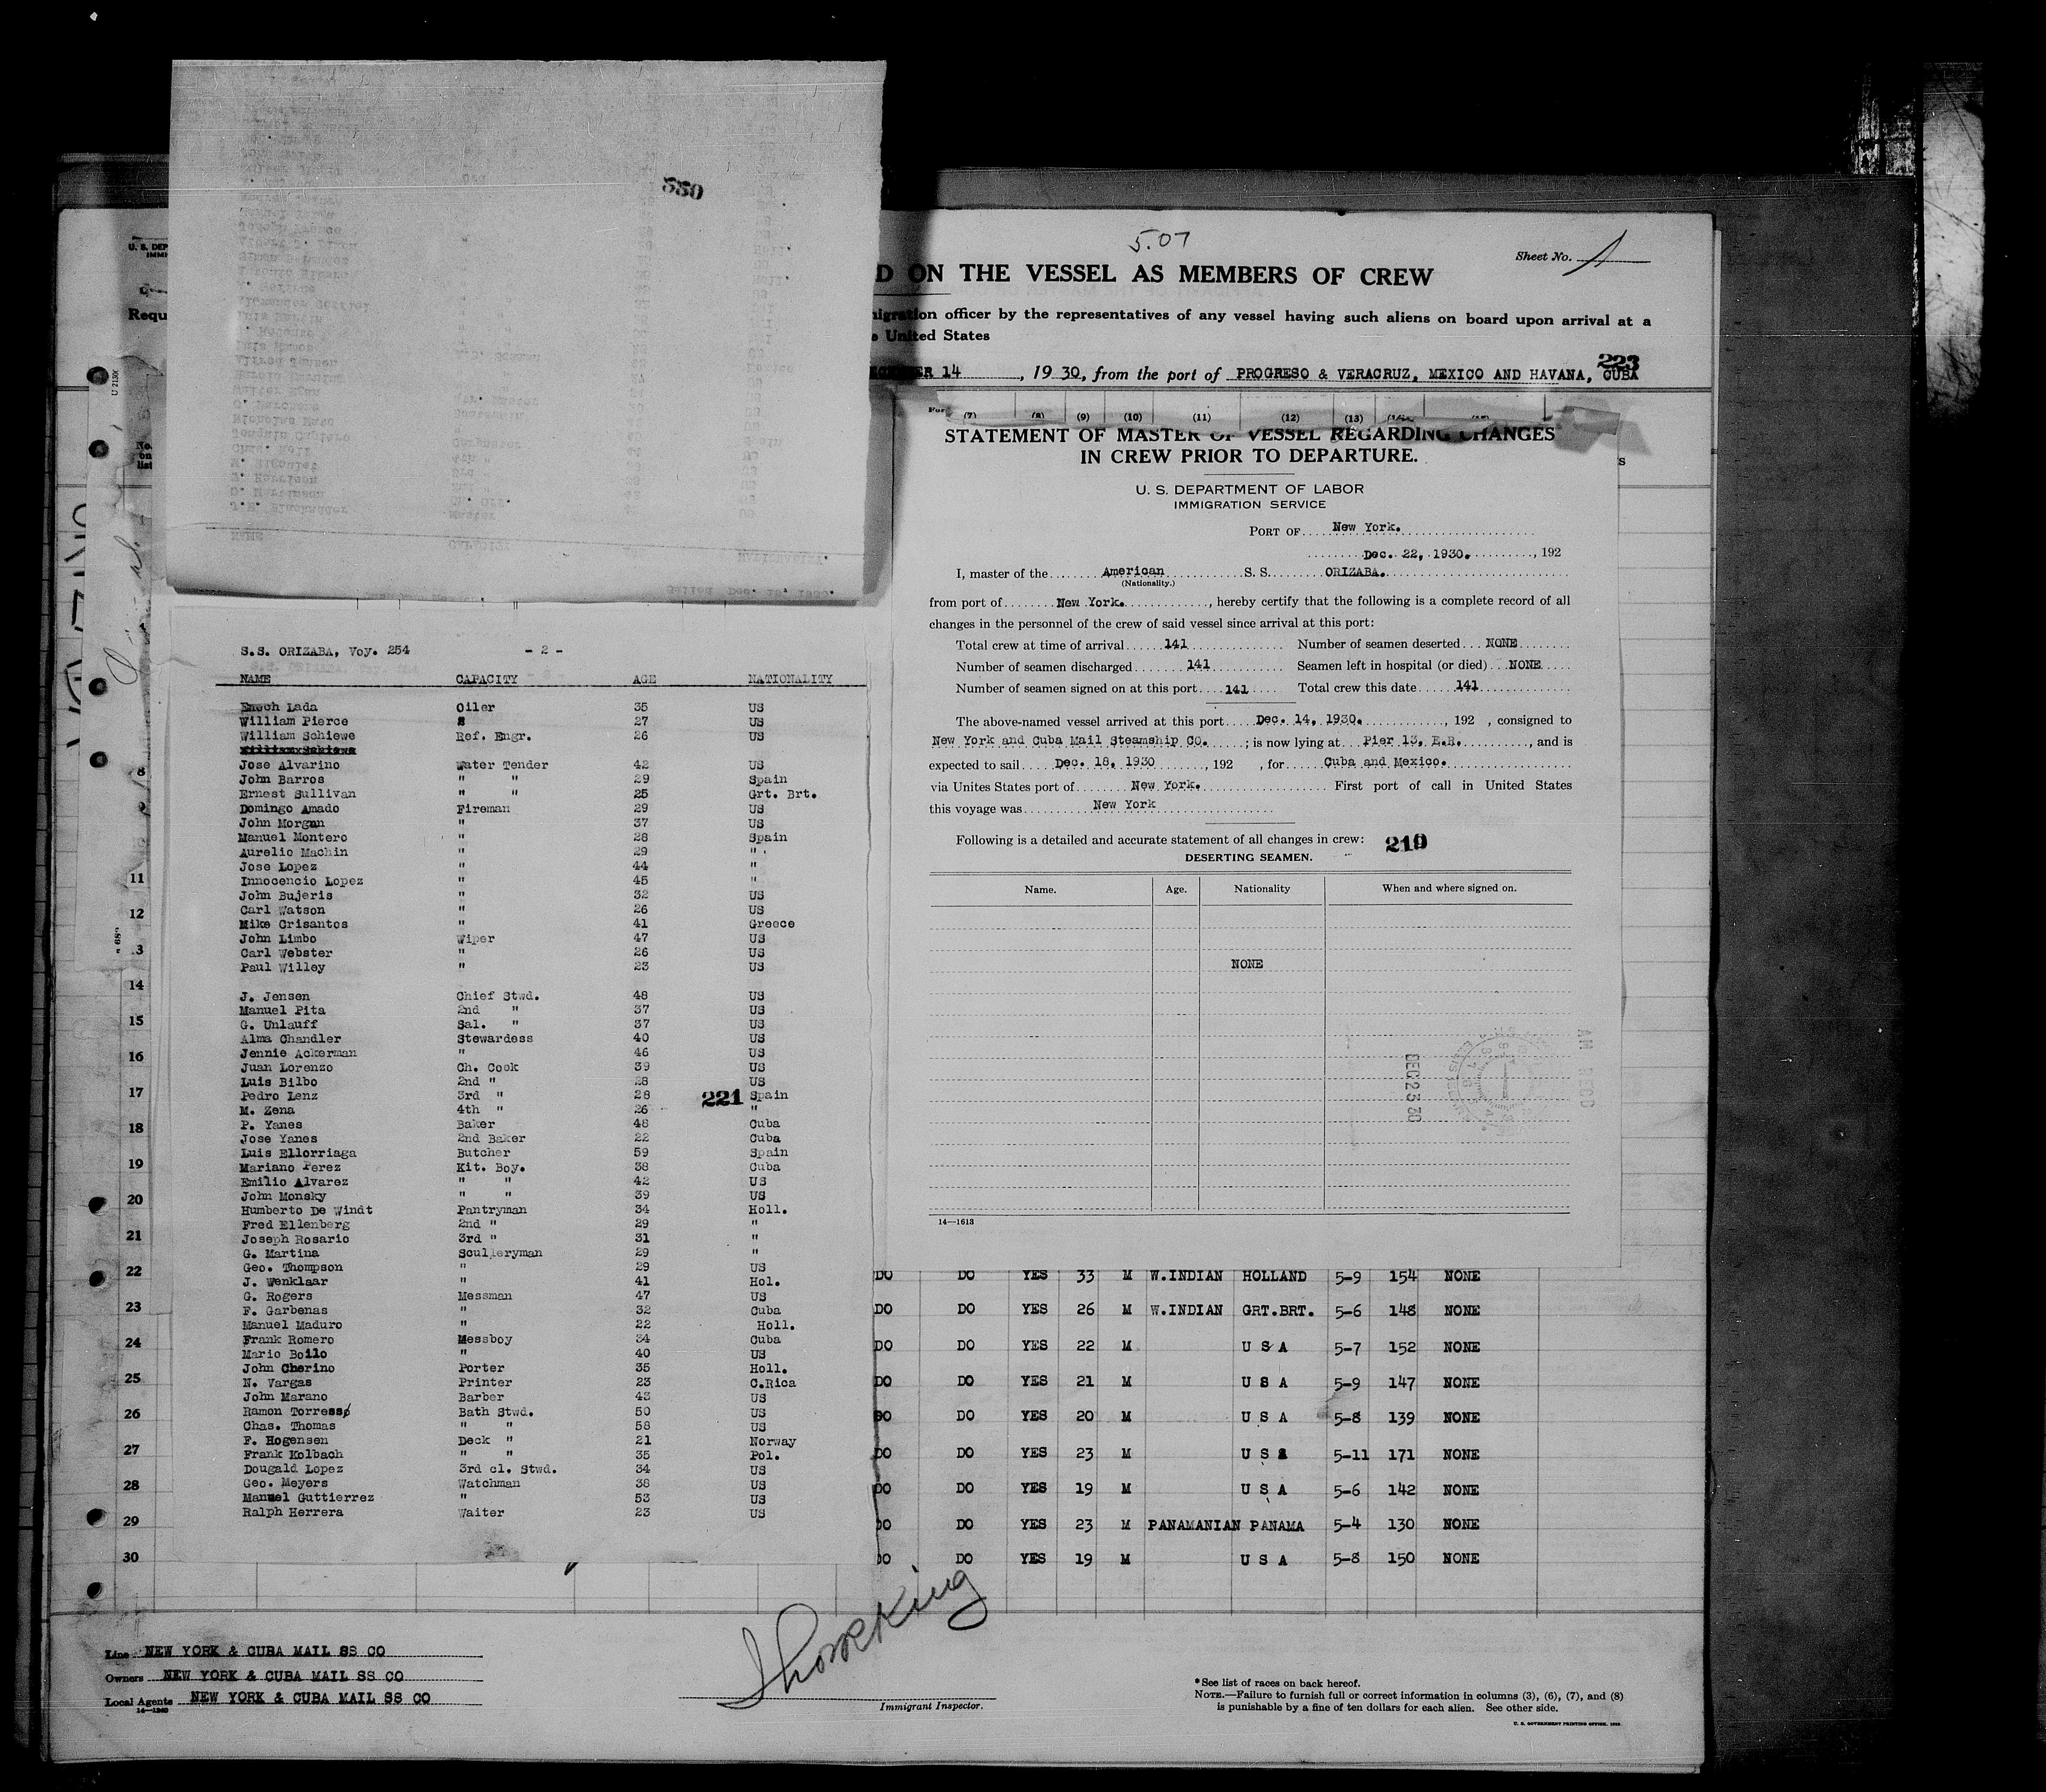 5.07
Sheet No. 1
D ON THE VESSEL AS MEMBERS OF CREW
migration officer by the representatives of any vessel having such aliens on board upon arrival at a
United States
ECEMBER 14, 19 30, from the port of PROGRESO & VERACRUZ, MEXICO AND HAVANA, CUBA
223
(7) (8) (9) (10) (11) (12) (13)
STATEMENT OF MASTER OF VESSEL REGARDING CHANGES
IN CREW PRIOR TO DEPARTURE.
U. S. DEPARTMENT OF LABOR
IMMIGRATION SERVICE
PORT OF New York.
Dec. 22, 1930. , 192
I, master of the American S. S. ORIZABA.
(Nationality.)
from port of New York. , hereby certify that the following is a complete record of all
changes in the personnel of the crew of said vessel since arrival at this port:
Total crew at time of arrival 141 Number of seamen deserted NONE
Number of seamen discharged 141 Seamen left in hospital (or died) NONE
Number of seamen signed on at this port 141 Total crew this date 141
The above-named vessel arrived at this port Dec. 14, 1930. , 192 , consigned to
New York and Cuba Mail Steamship CO. ; is now lying at Pier 13, E.R. , and is
expected to sail Dec. 18, 1930 , 192 , for Cuba and Mexico.
via Unites States port of New York. First port of call in United States
this voyage was New York
Following is a detailed and accurate statement of all changes in crew: 219
DESERTING SEAMEN.
Name. Age. Nationality When and where signed on.
NONE
DEC 23 30
AM RECD
14—1613
S.S. ORIZABA, Voy. 254 - 2 -
NAME CAPACITY AGE NATIONALITY
Enoch Lada Oiler 35 US
William Pierce " 27 US
William Schiewe Ref. Engr. 26 US
Jose Alvarino Water Tender 42 US
John Barros " " 29 Spain
Ernest Sullivan " " 25 Grt. Brt.
Domingo Amado Fireman 29 US
John Morgan " 37 US
Manuel Montero " 28 Spain
Aurelio Machin " 29 "
Jose Lopez " 44 "
Innocencio Lopez " 45 "
John Bujeris " 32 US
Carl Watson " 26 US
Mike Crisantos " 41 Greece
John Limbo Wiper 47 US
Carl Webster " 26 US
Paul Willey " 23 US
J. Jensen Chief Stwd. 48 US
Manuel Pita 2nd " 37 US
G. Unlauff Sal. " 37 US
Alma Chandler Stewardess 40 US
Jennie Ackerman " 46 US
Juan Lorenzo Ch. Cook 39 US
Luis Bilbo 2nd " 28 US
Pedro Lenz 3rd " 28 221 Spain
M. Zena 4th " 26 "
P. Yanes Baker 48 Cuba
Jose Yanes 2nd Baker 22 Cuba
Luis Ellorriaga Butcher 59 Spain
Mariano Perez Kit. Boy. 38 Cuba
Emilio Alvarez " " 42 US
John Monsky " " 39 US
Humberto De Windt Pantryman 34 Holl.
Fred Ellenberg 2nd " 29 "
Joseph Rosario 3rd " 31 "
G. Martina Sculleryman 29 "
Geo. Thompson " 29 US
J. Wenklaar " 41 Hol.
G. Rogers Messman 47 US
F. Garbenas " 32 Cuba
Manuel Maduro " 22 Holl.
Frank Romero Messboy 34 Cuba
Mario Boilo " 40 US
John Cherino Porter 35 Holl.
N. Vargas Printer 23 C.Rica
John Marano Barber 43 US
Ramon Torress Bath Stwd. 50 US
Chas. Thomas " " 58 US
F. Hogensen Deck " 21 Norway
Frank Kolbach " " 35 Pol.
Dougald Lopez 3rd cl. Stwd. 34 US
Geo. Meyers Watchman 38 US
Manuel Guttierrez " 53 US
Ralph Herrera Waiter 23 US
11
12
14
15
16
17
18
19
20
21
22 DO DO YES 33 M W.INDIAN HOLLAND 5-9 154 NONE
23 DO DO YES 26 M W.INDIAN GRT.BRT. 5-6 148 NONE
24 DO DO YES 22 M U S A 5-7 152 NONE
25 DO DO YES 21 M U S A 5-9 147 NONE
26 DO DO YES 20 M U S A 5-8 139 NONE
27 DO DO YES 23 M U S A 5-11 171 NONE
28 DO DO YES 19 M U S A 5-6 142 NONE
29 DO DO YES 23 M PANAMANIAN PANAMA 5-4 130 NONE
30 DO DO YES 19 M U S A 5-8 150 NONE
Line NEW YORK & CUBA MAIL SS CO
Owners NEW YORK & CUBA MAIL SS CO
Local Agents NEW YORK & CUBA MAIL SS CO
Immigrant Inspector.
*See list of races on back hereof.
NOTE.—Failure to furnish full or correct information in columns (3), (6), (7), and (8)
is punishable by a fine of ten dollars for each alien. See other side.
U. S. GOVERNMENT PRINTING OFFICE